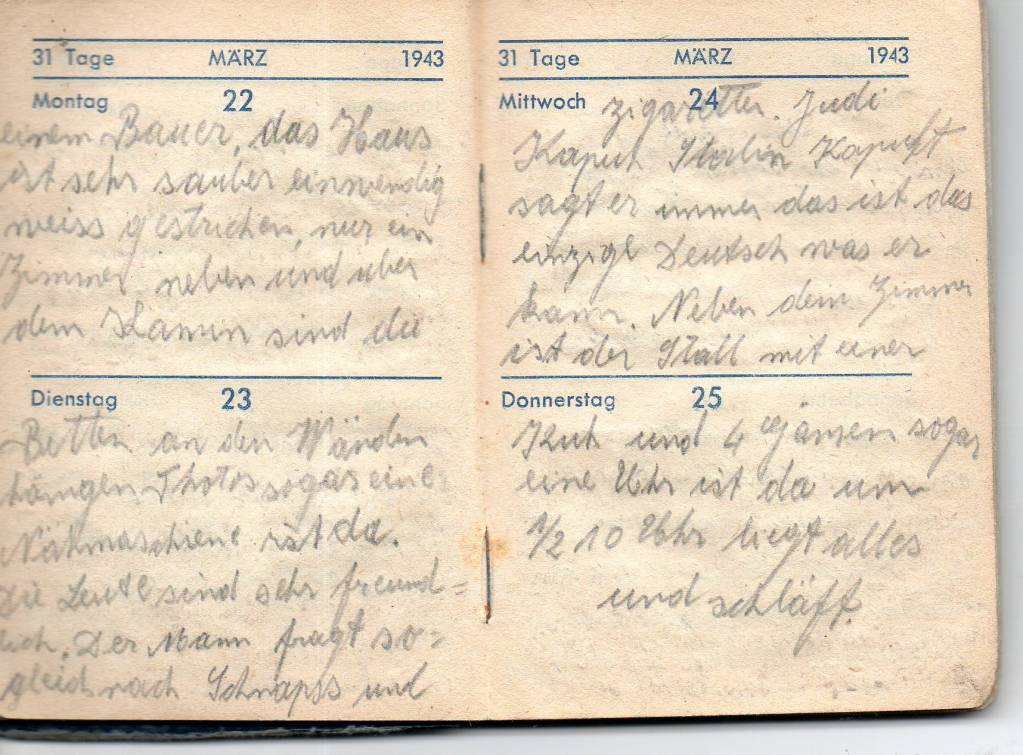 31 Tage MÄRZ 1943
Montag 22
einem Bauer, das Haus
ist sehr sauber einwendig
weiss gestrichen, nur ein
Zimmer neben und über
dem Kamin sind die
Dienstag 23
Betten an den Wänden
hängen Photos sogar eine
Nähmaschiene ist da.
Die Leute sind sehr freund=
lich. Der Mann fragt so=
gleich nach Schnapss und
31 Tage MÄRZ 1943
Mittwoch 24
Zigaretten. Judi
Kaput Stalin Kaputt
sagt er immer das ist das
einzige Deutsch was er
kann. Neben dem Zimmer
ist der Stall mit einer
Donnerstag 25
Kuh und 4 Gänsen sogar
eine Uhr ist da um
1/2 10 Uhr liegt alles
und schläft.